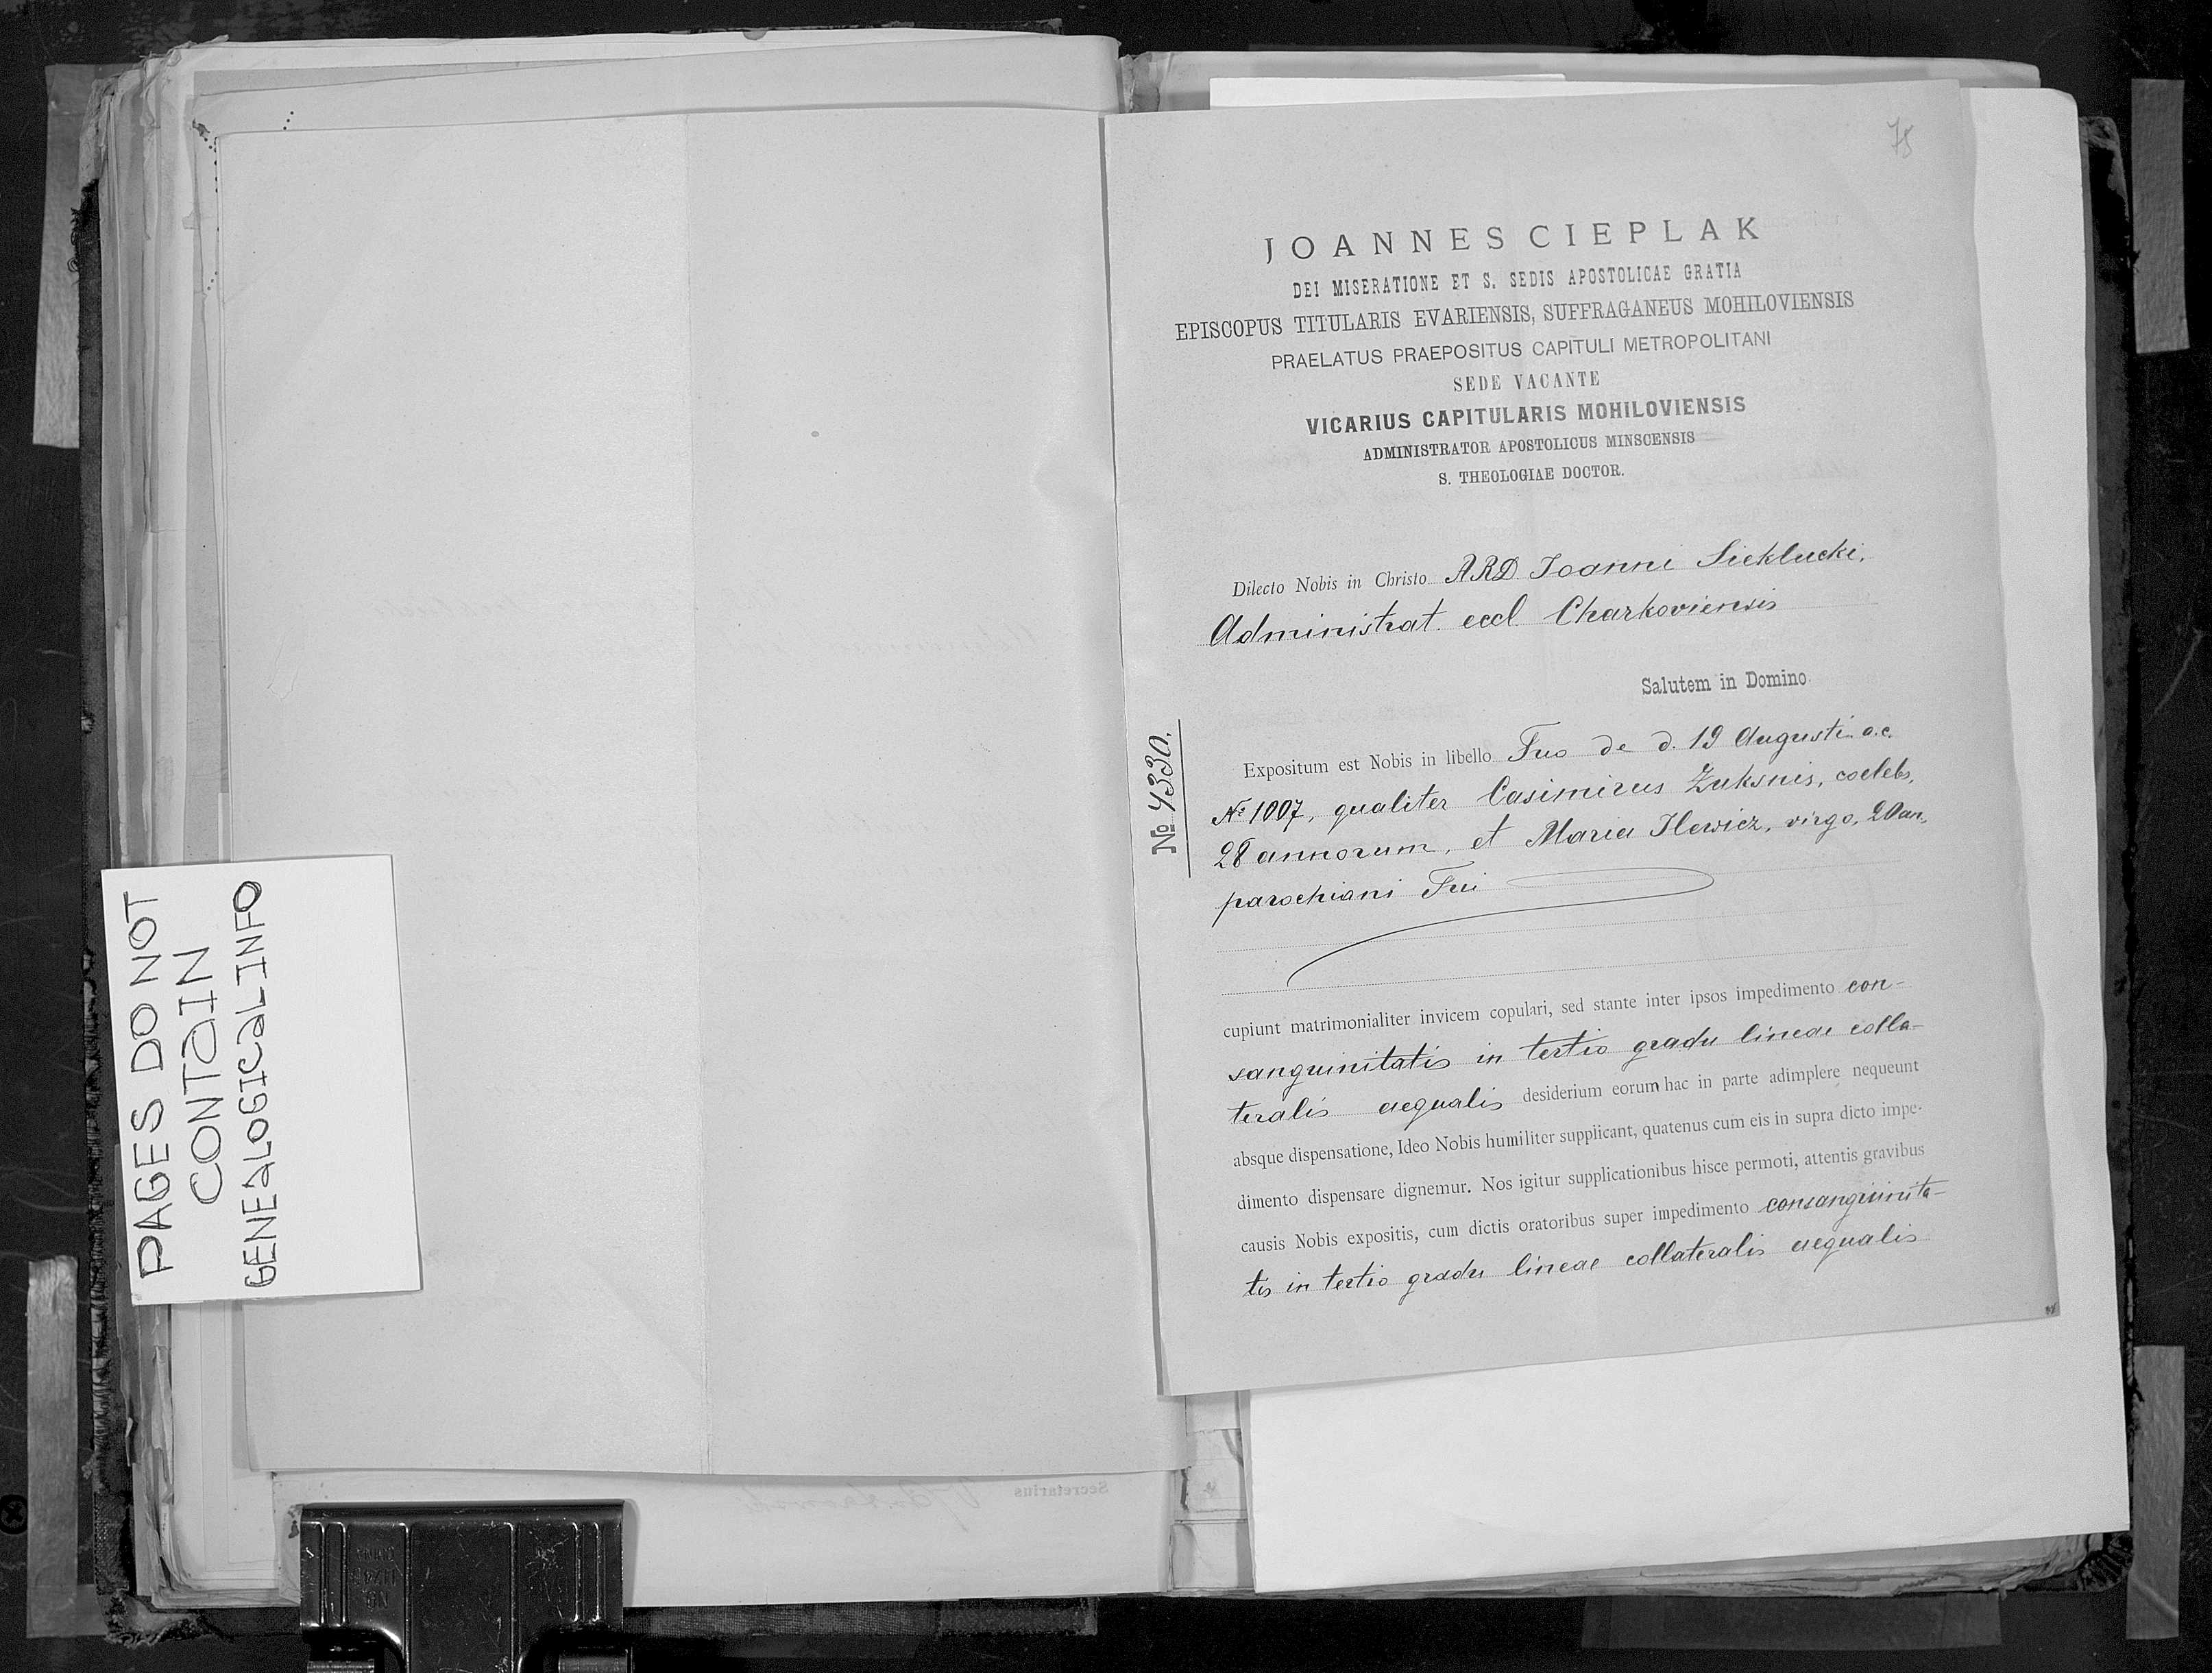 PAGES DO NOT
CONTAIN
GENEALOGICAL INFO
Secretarius
78
JOANNES CIEPLAK
DEI MISERATIONE ET S. SEDIS APOSTOLICAE GRATIA
EPISCOPUS TITULARIS EVARIENSIS, SUFFRAGANEUS MOHILOVIENSIS
PRAELATUS PRAEPOSITUS CAPITULI METROPOLITANI
SEDE VACANTE
VICARIUS CAPITULARIS MOHILOVIENSIS
ADMINISTRATOR APOSTOLICUS MINSCENSIS
S. THEOLOGIAE DOCTOR.
Dilecto Nobis in Christo ARD Joanni Sieklucki,
Administrat. eccl Charkoviensis
Salutem in Domino
№ 4330.
Expositum est Nobis in libello Tuo de d. 19 Augusti a.c.
№ 1007, qualiter Casimirus Zuksnis, coelebs,
28 annorum, et Maria Ilewicz, virgo, 20 an,
parochiani Tui
cupiunt matrimonialiter invicem copulari, sed stante inter ipsos impedimento con-
sanguinitatis in tertio gradu lineae colla-
teralis aequalis desiderium eorum hac in parte adimplere nequeunt
absque dispensatione, Ideo Nobis humiliter supplicant, quatenus cum eis in supra dicto impe-
dimento dispensare dignemur. Nos igitur supplicationibus hisce permoti, attentis gravibus
causis Nobis expositis, cum dictis oratoribus super impedimento consanguinita-
tis in tertio gradu lineae collateralis aequalis